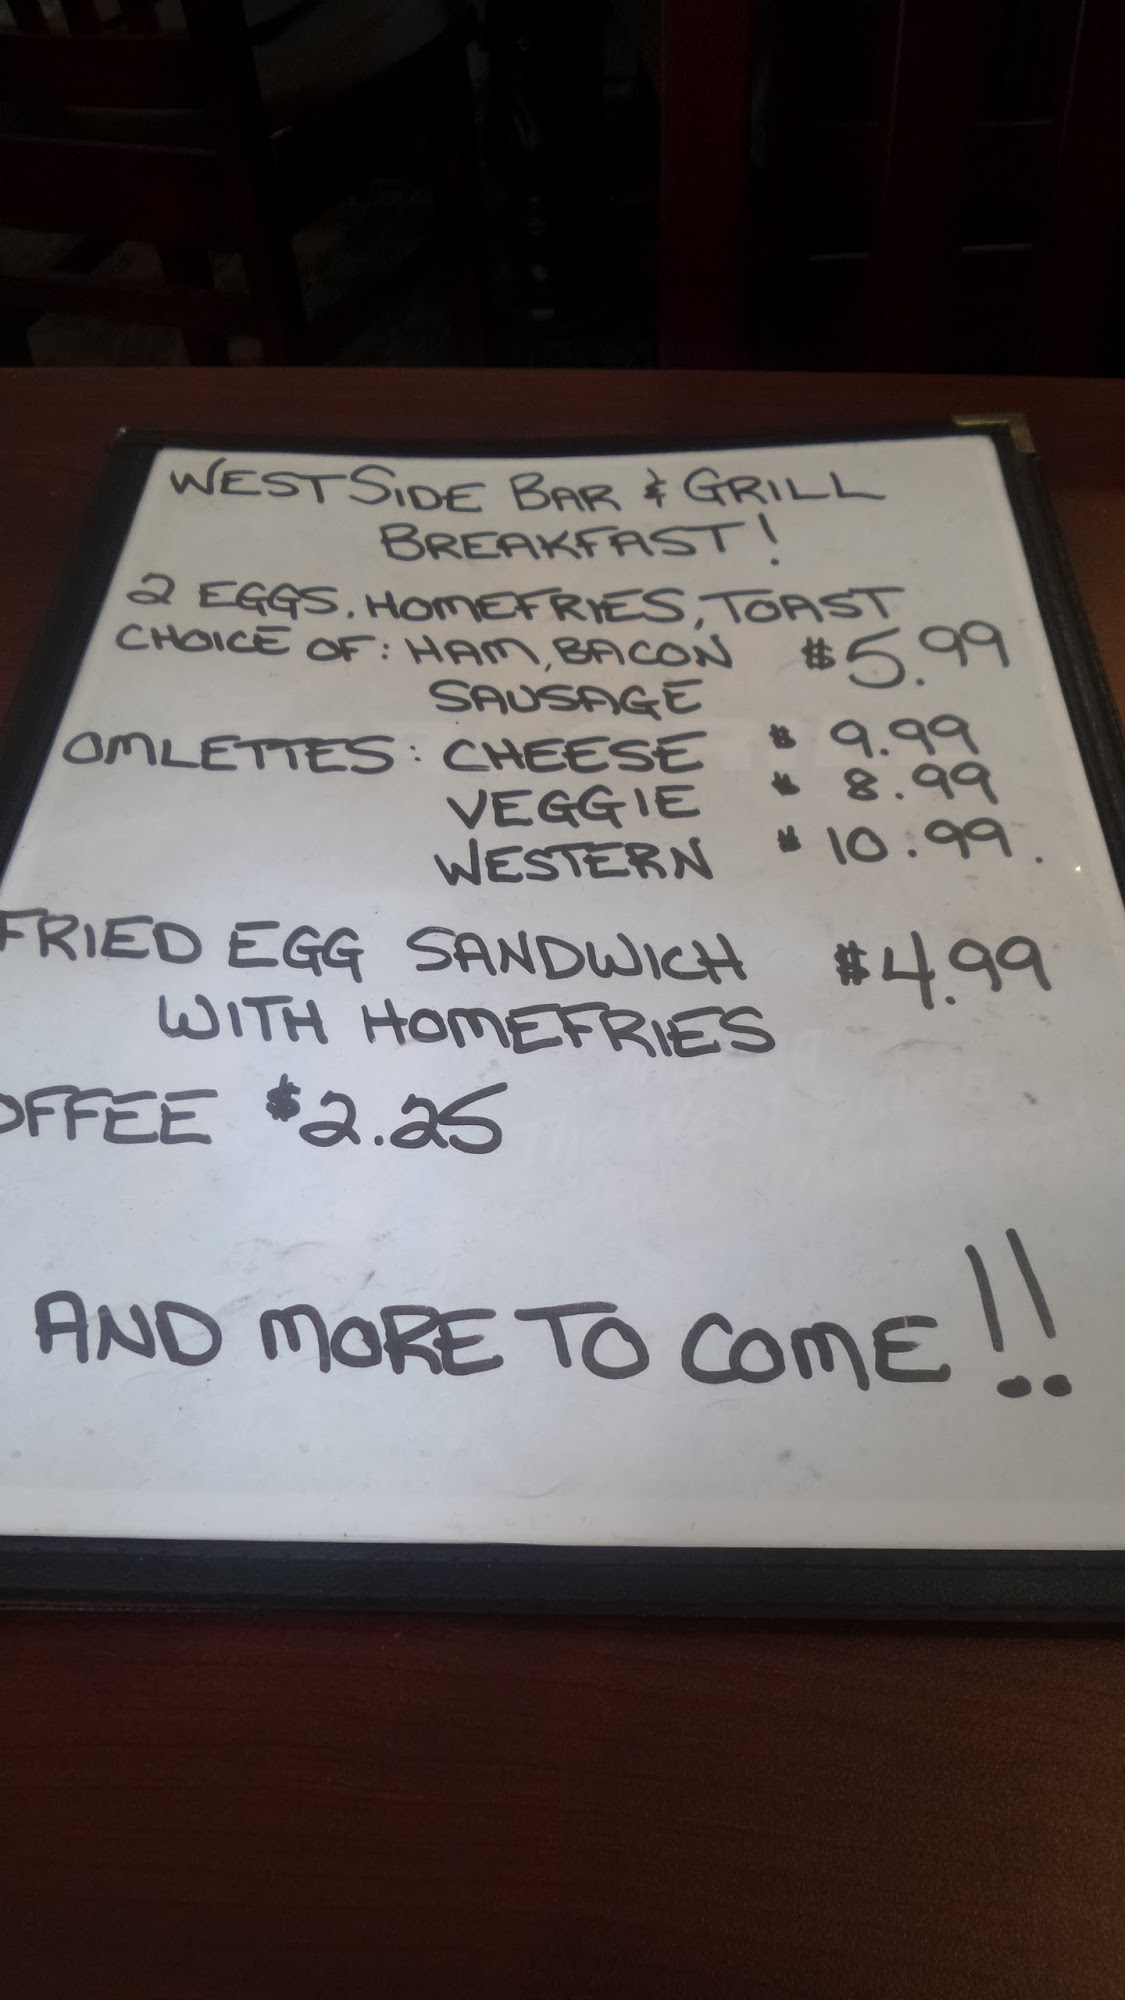 WESTSIDE BAR & GRILL
BREAKFAST!
2 EGGS, HOMEFRIES, TOAST
CHOICE OF: HAM, BACON $5.99
SAUSAGE
OMLETTES: CHEESE $ 9.99
VEGGIE $ 8.99
WESTERN $ 10.99.
FRIED EGG SANDWICH $4.99
WITH HOMEFRIES
OFFEE $2.25
AND MORE TO COME!!